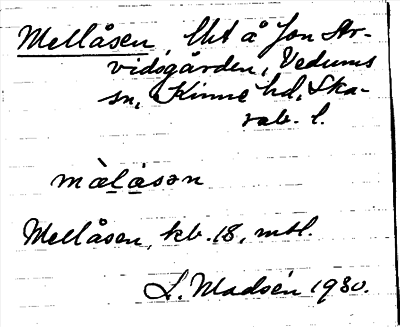 Mellåsen, lht å Jon Ar-
vidsgården, Vedums
sn, Kinne hd, Ska-
rab. l.
mèlåsən
Mellåsen, kb. 18, mtl.
L. Madsén 1930.